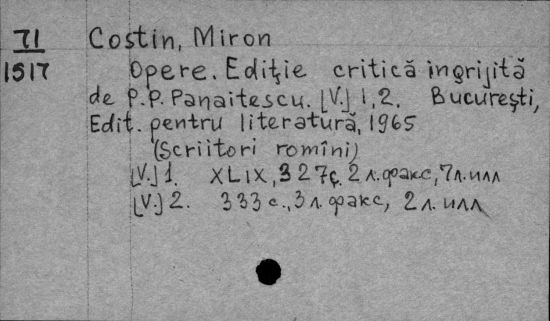 71 Costin, Miron
1517 Opere. Ediţie critică ingrijită
de P.P. Panaitescu. [V.] 1,2. Bucureşti,
Edit. pentru literatură, 1965
(Scriitori romîni)
[V.] 1. XLIX, 327с. 2 л. факс, 7 л. илл
[V.] 2. 333 с., 3 л. факс, 2 л. илл